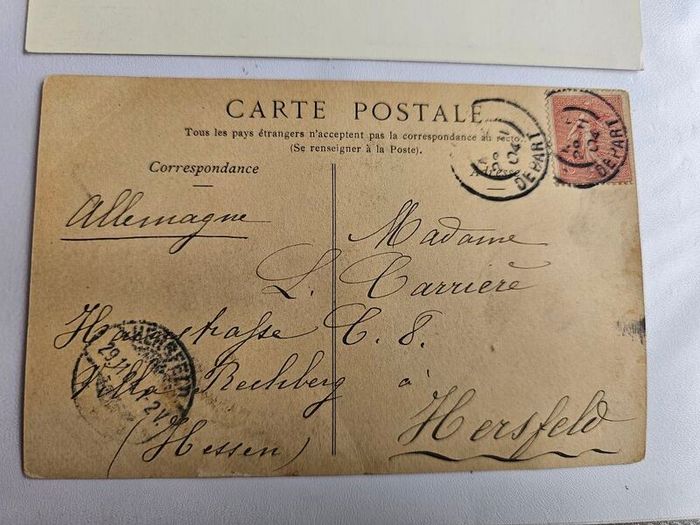 CARTE POSTALE
Tous les pays étrangers n'acceptent pas la correspondance au recto.
(Se renseigner à la Poste).
Correspondance
Adresse
28 11
04
DEPART
28 11
04
DEPART
Allemagne
Madame
L. Carrière
C. 8.
Villa Rechberg à
(Hessen)
Hersfeld
HERSFELD
29.11
2-V.